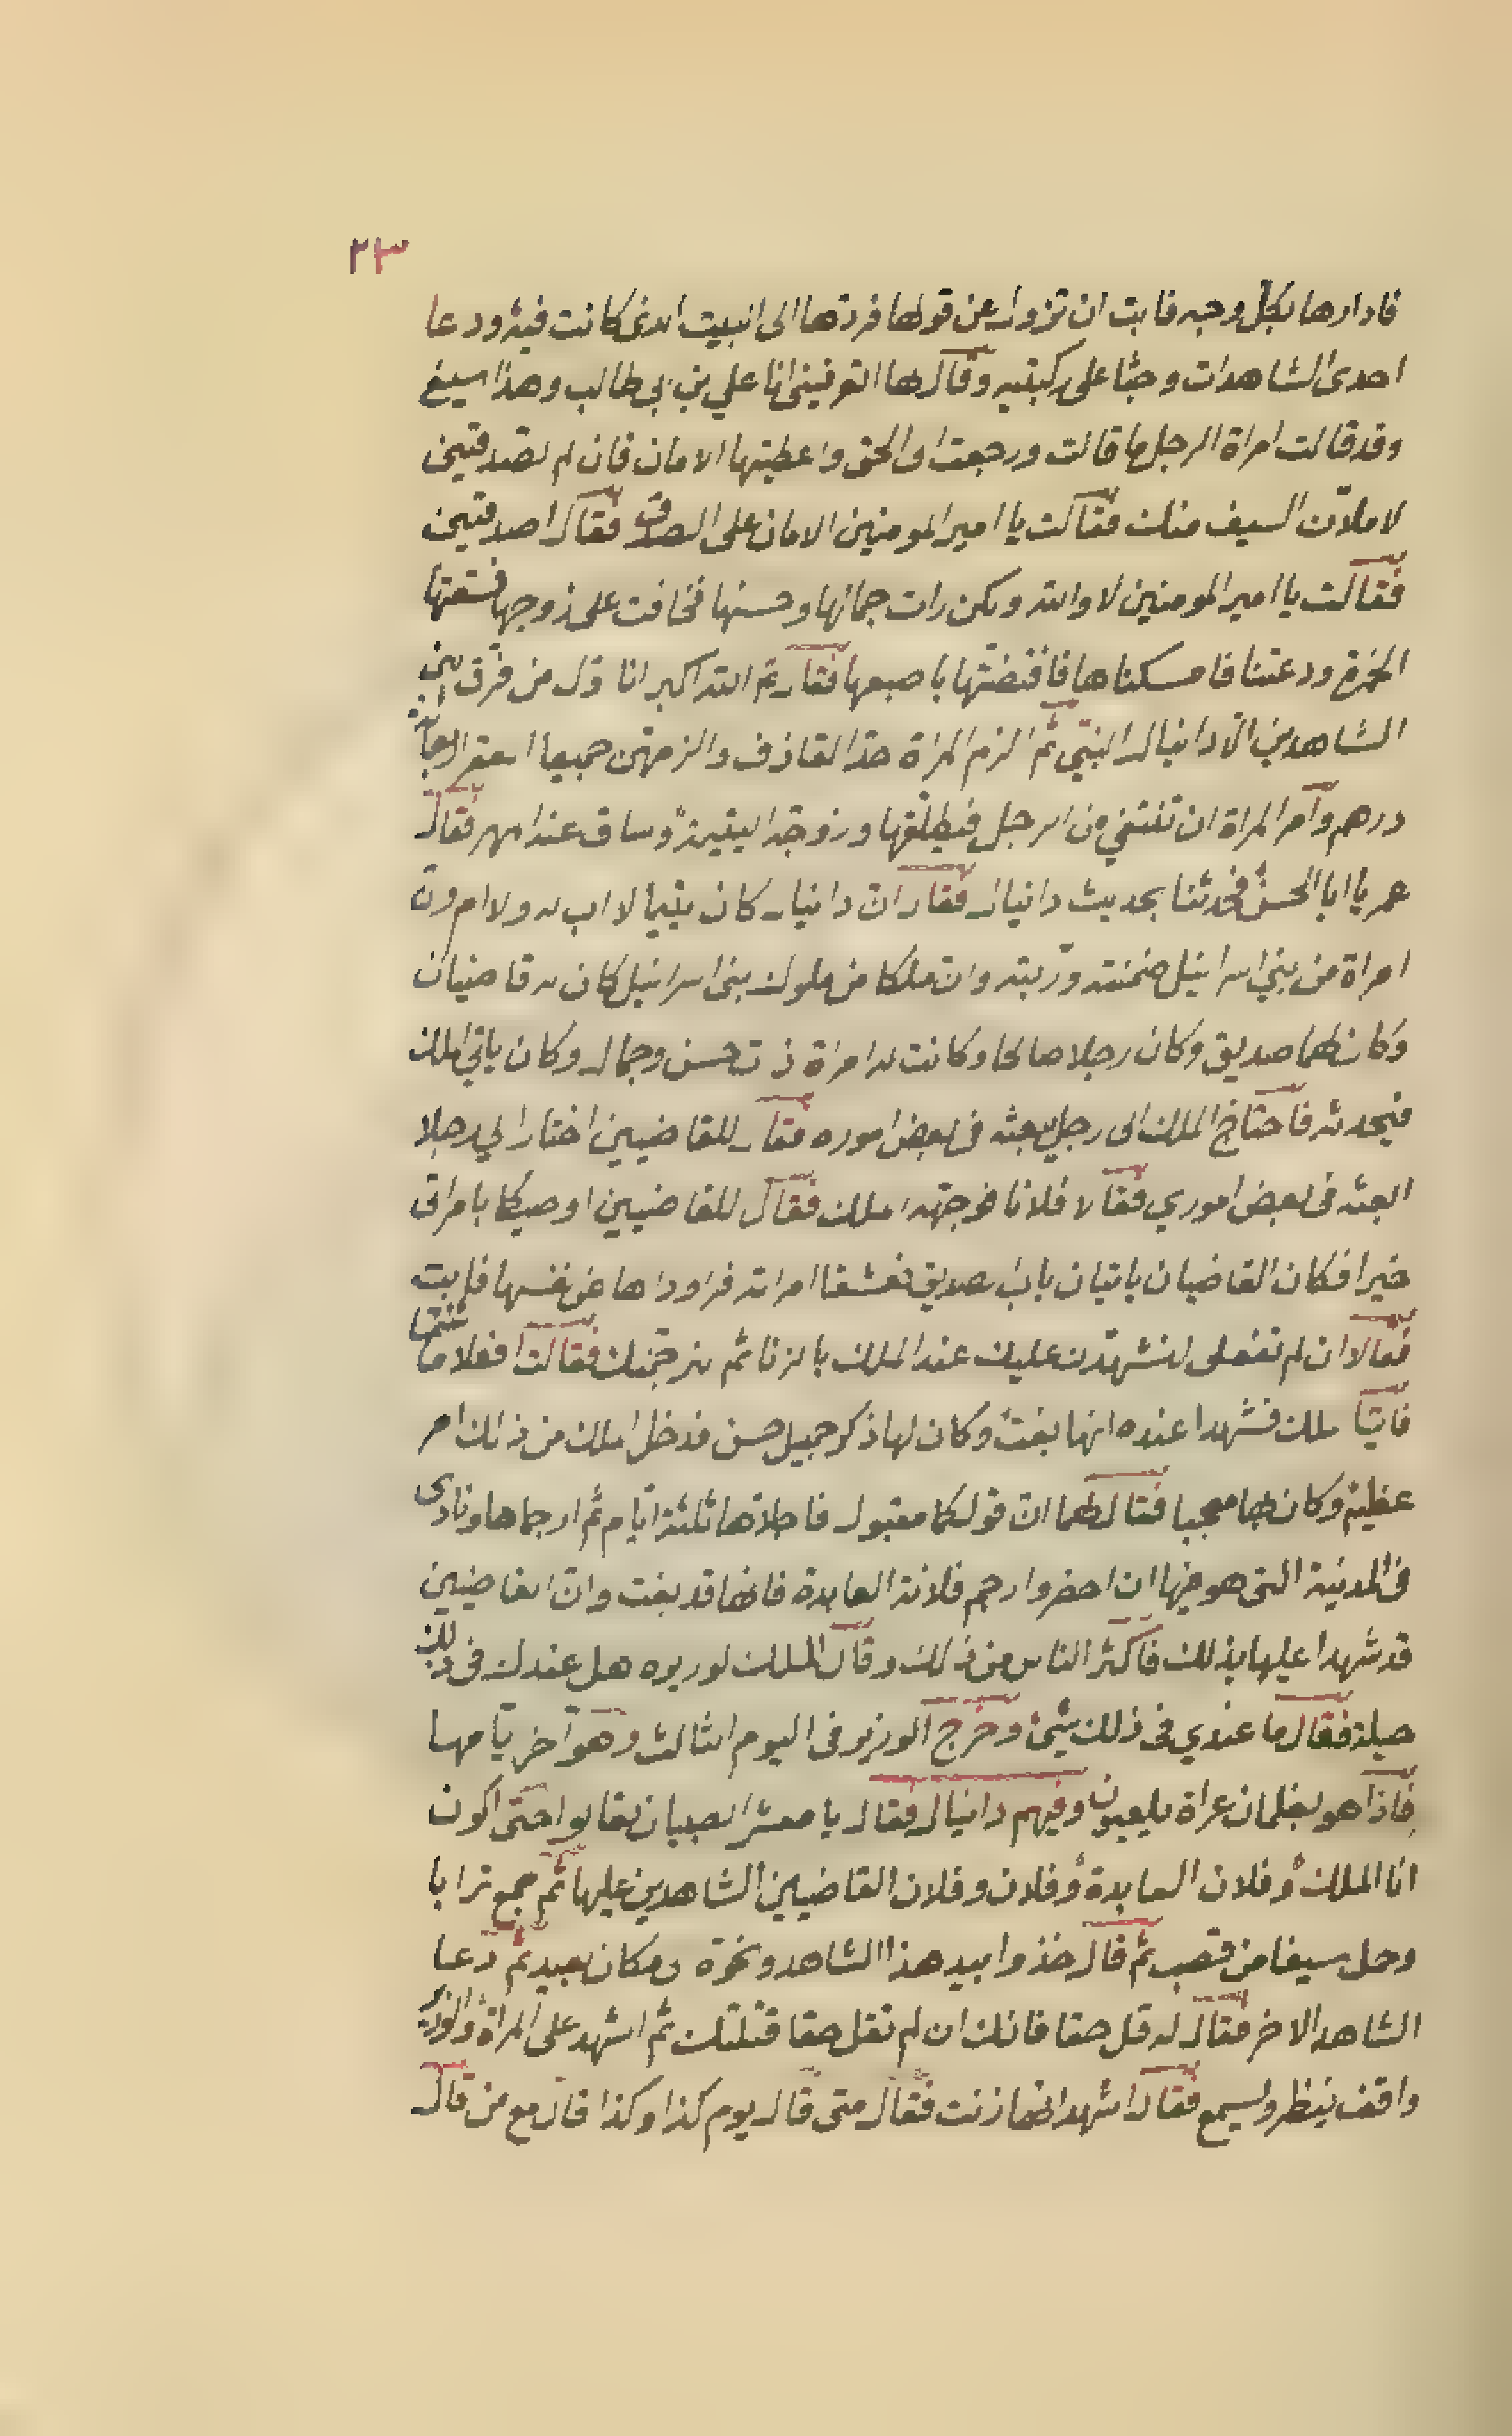 ٢٣
فادارها بكل وجه فابت ان تزول عن قولها فردها الى البيت الذى كانت فيه ودعا
احدى الشاهدات وجثا على ركبتيه وقال لها اتعرفينى انا علي بن ابى طالب وهذا سيفى
وقد قالت امراة الرجل ما قالت ورجعت الى الحق واعطيتها الامان فان لم تصدقينى
لاملان السيف منك فقالت يا امير المومنين الامان على الصدق فقال اصدقينى
فقالت يا امير المومنين لا والله ولكن رات جمالها وحسنها فخافت على زوجها فسقتها
الخمر ودعتنا فامسكناها فافتضتها باصبعها فقال ع الله اكبر انا اول من فرق بين
الشاهدين الا دانيال النبي ثم الزم المراة حد القاذف والزمهن جميعا العقر اربعمائة
درهم وامر المراة ان تنتفي من الرجل فيطلقها وزوجه اليتيمة وساق عنه المهر فقال
عمر يا ابا الحسن فحدثنا بحديث دانيال فقال ان دانيال كان يتيما لا اب له ولا ام وان
امراة من بني اسرائيل ضمنته وربته وان ملكا من ملوك بنى اسرائيل كان له قاضيان
وكان لهما صديق وكان رجلا صالحا وكانت له امراة ذات حسن وجمال وكان ياتي الملك
فيحدثه فاحتاج الملك الى رجل يبعثه فى بعض اموره فقال للقاضيين اختارا لي رجلا
ابعثه فى بعض اموري فقالا فلانا فوجهه الملك فقال للقاضيين اوصيكما بامراتى
خيرا فكان القاضيان ياتيان باب الصديق فعشقا امراته فراوداها عن نفسها فابت
فقالا ان لم تفعلى لنشهدن عليك عند الملك بالزنا ثم نرجمنك فقالت افعلا ما شئتما
فاتيا الملك فشهدا عنده انها بغت وكان لها ذكر جميل حسن فدخل الملك من ذلك امر
عظيم وكان بها معجبا فقال لهما ان قولكما مقبول فاجلاها ثلثة ايام ثم ارجماها ونادى
فى المدينة التى هو فيها ان احضروا رجم فلانة العابدة فانها قد بغت وان القاضيين
قد شهدا عليها بذلك فاكثر الناس من ذلك وقال الملك لوزيره هل عندك فى ذلك
حيلة فقال ما عندي فى ذلك شئ وخرج الوزير فى اليوم الثالث وهو آخر ايامها
فاذا هو بغلمان عراة يلعبون وفيهم دانيال فقال يا معشر الصبيان تعالوا حتى اكون
انا الملك وفلان العابدة وفلان وفلان القاضيين الشاهدين عليها ثم جمع ترابا
وجعل سيفا من قصب ثم قال خذوا بيد هذا الشاهد ونحوه الى مكان بعيد ثم دعا
الشاهد الاخر فقال له قل حقا فانك ان لم تقل حقا قتلتك ثم اشهد على المراة والوزير
واقف ينظر ويسمع فقال اشهد انها زنت فقال متى قال يوم كذا وكذا قال مع من قال